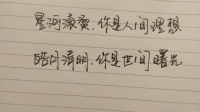 星河滚烫，你是人间理想
皓月清明，你是世间曙光